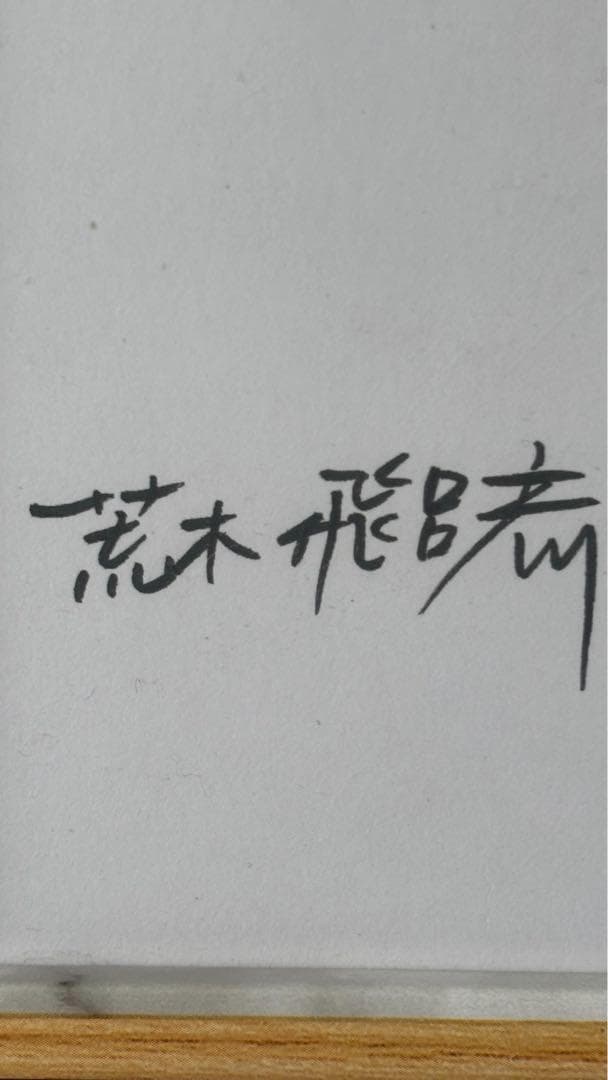 荒木飛呂彦